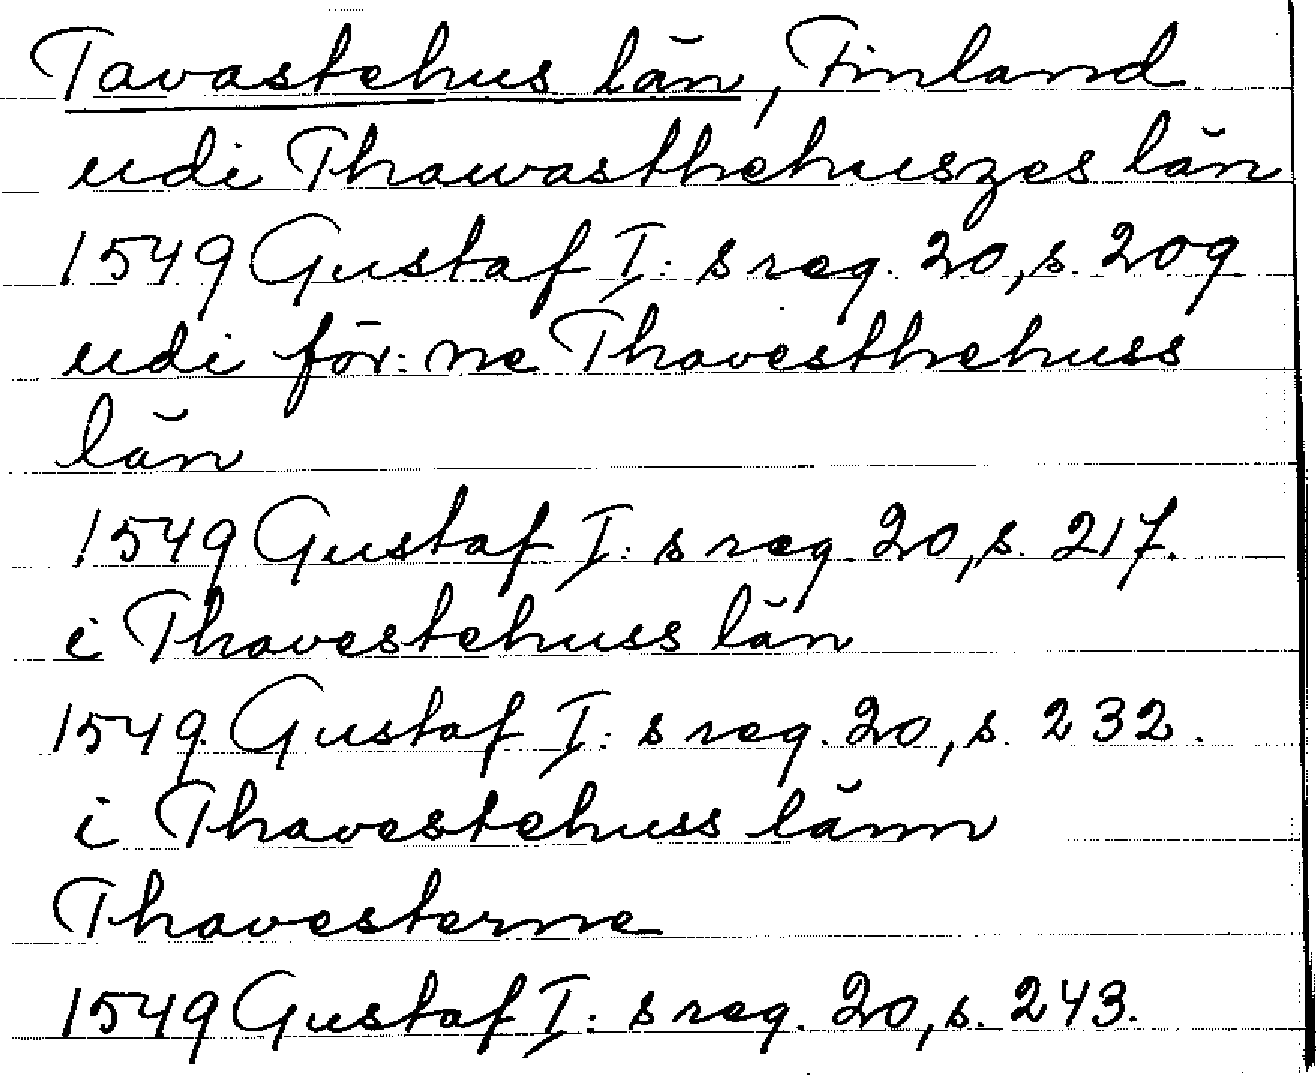 Tavastehus län, Finland
udi Thawasthehuszes län
1549 Gustaf I: s reg. 20, s. 209
udi för: ne Thavesthehuss
län
1549 Gustaf I: s reg. 20, s. 217.
i Thavestehuss län
1549. Gustaf I: s reg. 20, s. 232.
i Thavestehuss länn
Thavesterne
1549 Gustaf I: s reg. 20, s. 243.